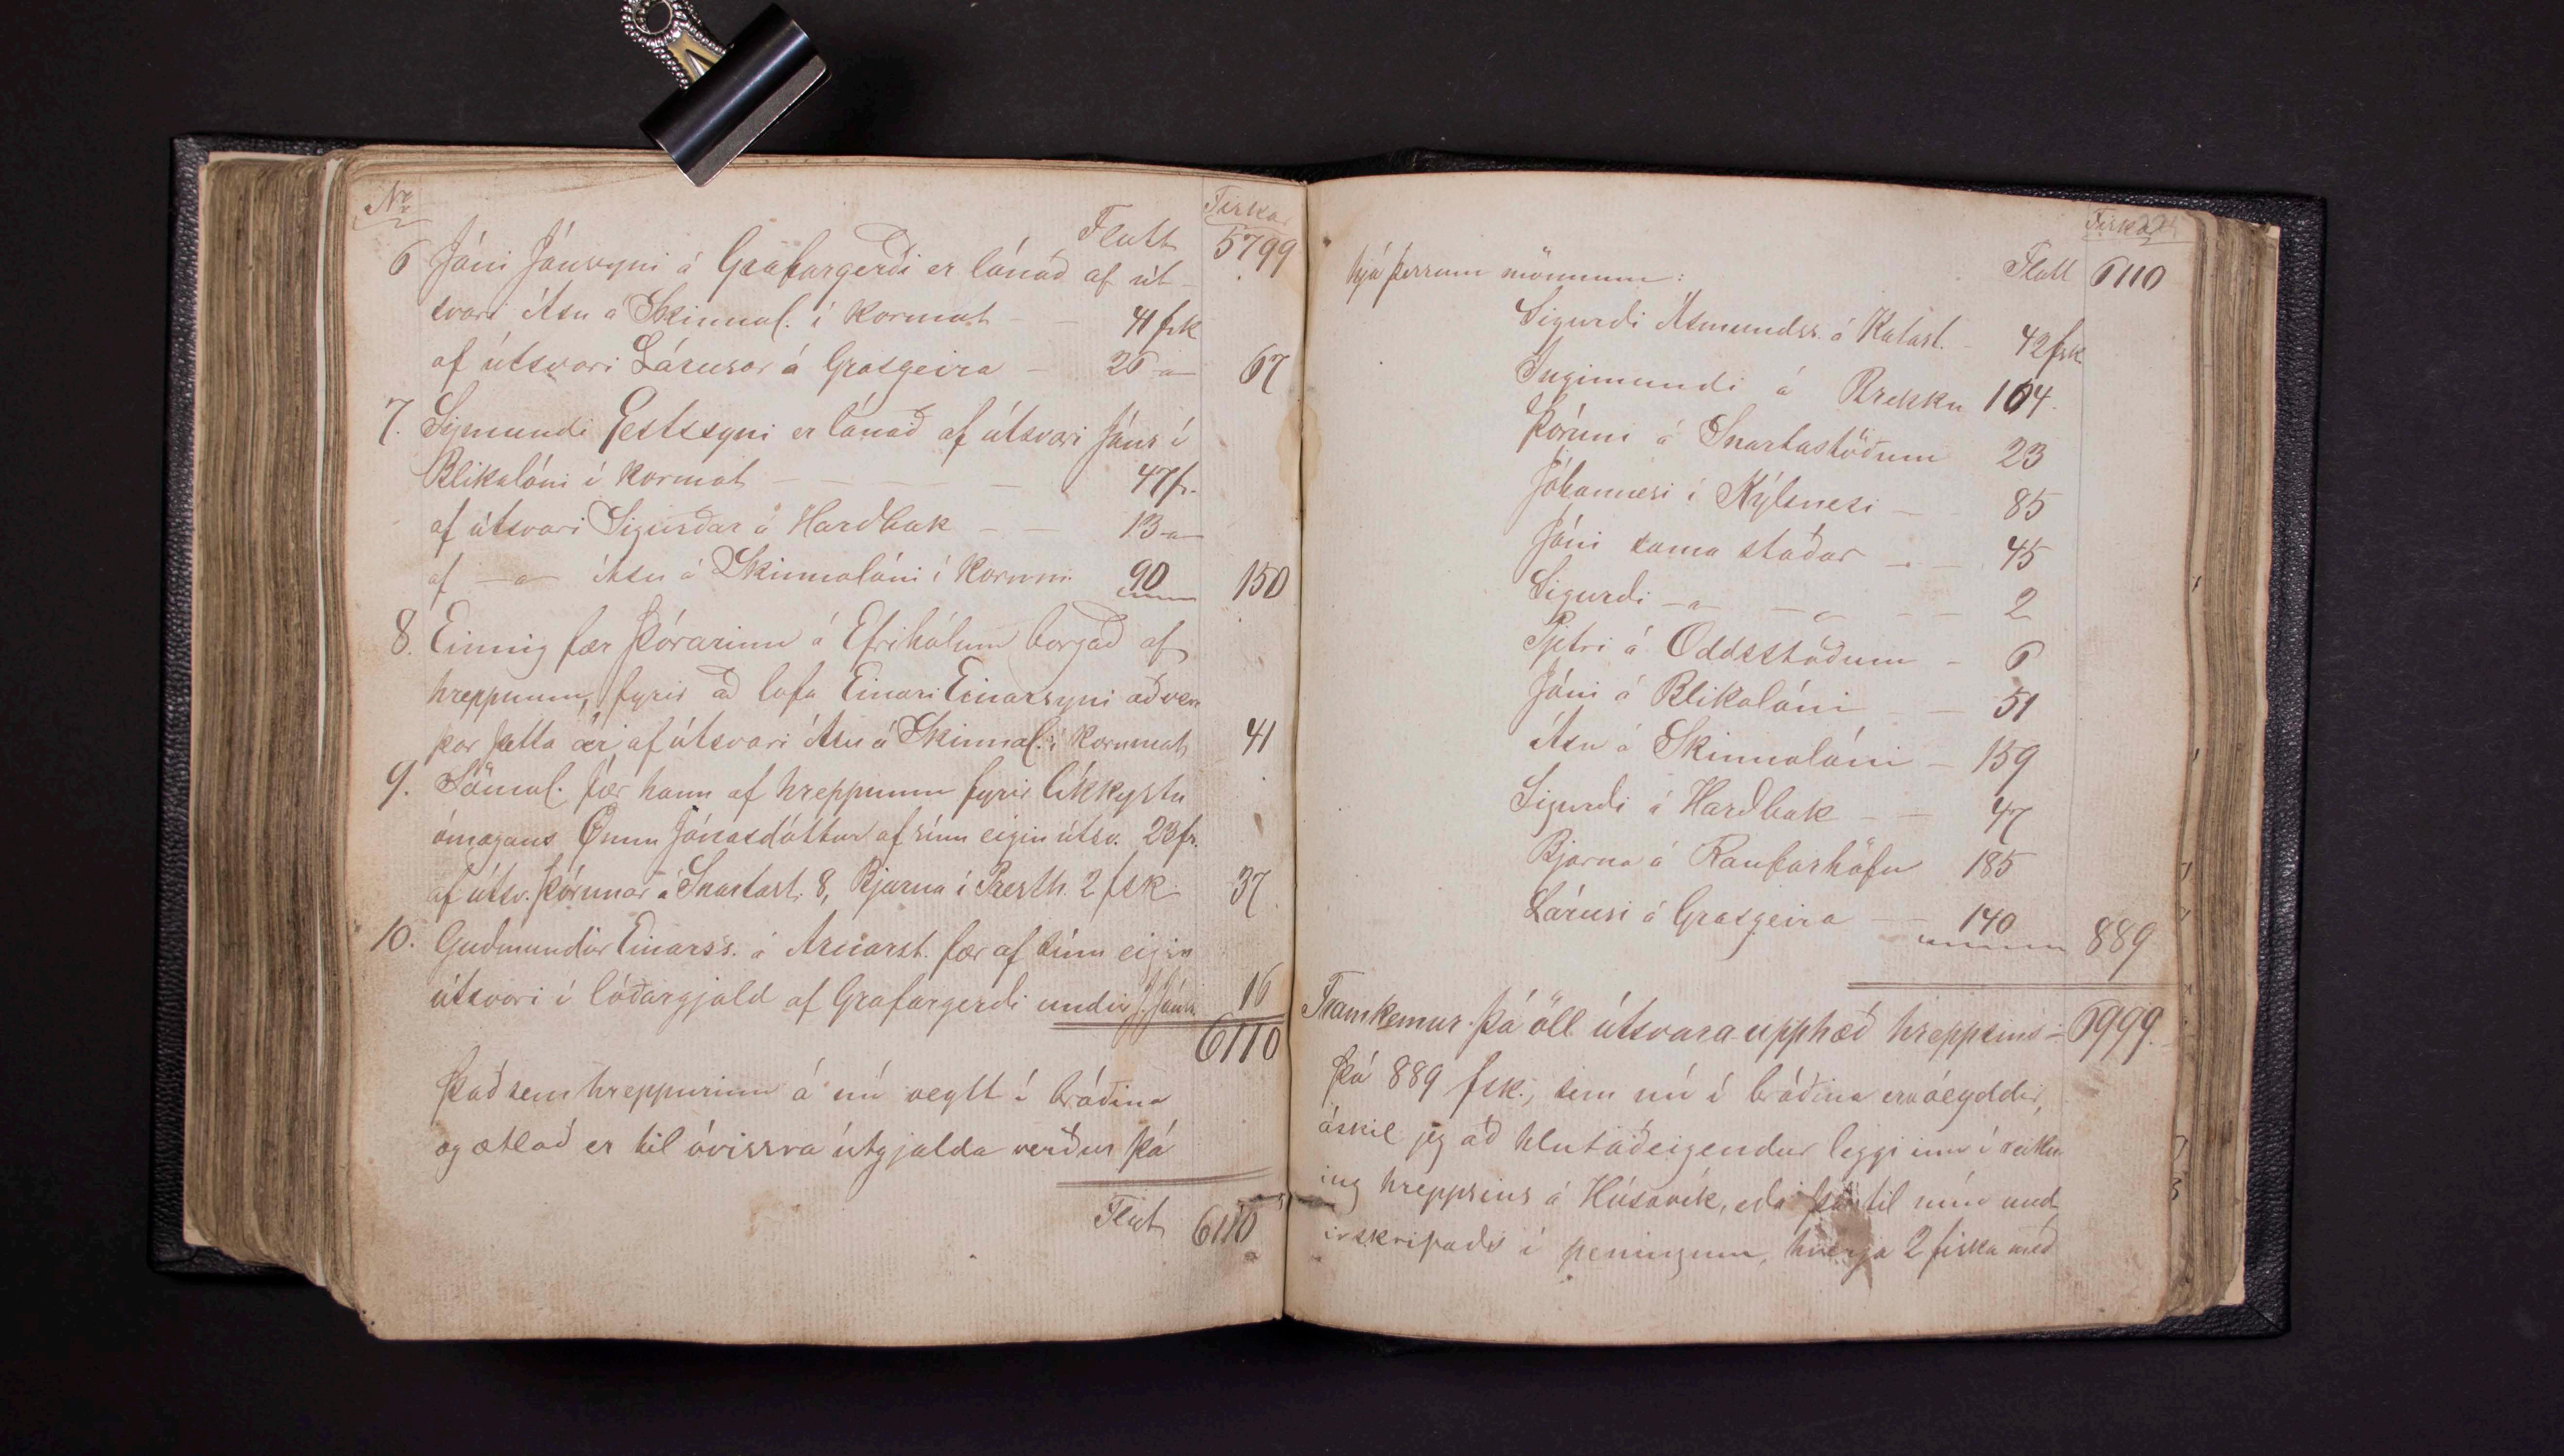 Nr. Fiska
Flutt 5799
6 Jóni Jónssyni á Grafargerði er lánað af út-
svari Ásu á Skinnal. í kornmat - - 41 fsk
af útsvari Lárusar á Grasgeira - 26 -"- 67
7. Sigmundi Gestssyni er lánað af útsvari Jóns í
Blikalóni í kornmat - - - - 47 f.
af útsvari Sigurðar á Harðbak - - 13 -"-
af -"- Ásu á Skinnalóni í kornm. 90 150
8. Einnig fær Þórarinn á Efrihólum borgað af
hreppnum, fyrir að lofa Einari Einarssyni að vera
þar þetta ár, af útsvari Ásu á Skinnal. í kornmat 41
9. Sömul. fær hann af hreppnum fyrir líkkystu
ómagans Önnu Jónasdóttur af sínu eigin útsv. 23 f.
af útsv. Þórunnar á Snartast. 8, Bjarna í Presth. 2 fsk 37
10. Guðmundur Einarss. á Arnarst. fær af sínu eigin
útsvari í lóðargjald af Grafargerði undir J. Jónss. 16
6110
Það sem hreppurinn á nú óeytt í bráðina
og ætlað er til óvissra útgjalda verður þá
Flutt 6110
Fiska
hjá þessum mönnum: Flutt 6110
Sigurði Ásmundss. á Katast. - 42 fsk
Ingimundi á Brekku 104.
Þórunni á Snartastöðum 23
Jóhannesi í Nýlsnesi - - 85
Jóni sama staðar - - 45
Sigurði -"- -"- - - 2
Pjetri á Oddsstöðum - 6
Jóni á Blikalóni - - 51
Ásu á Skinnalóni - 159
Sigurði á Harðbak - - 47
Bjarna á Raufarhöfn 185
Lárusi á Grasgeira - - 140 889
Framkemur þá öll útsvara-upphæð hreppsins = 6999.
Þá 889 fsk., sem nú í bráðina eru óeyddir,
áskil jeg að hlutaðeigendur leggi inn í reikn
ing hreppsins á Húsavík, eða þá til mín und
irskrifaðs í peningum, hverja 2 fiska með